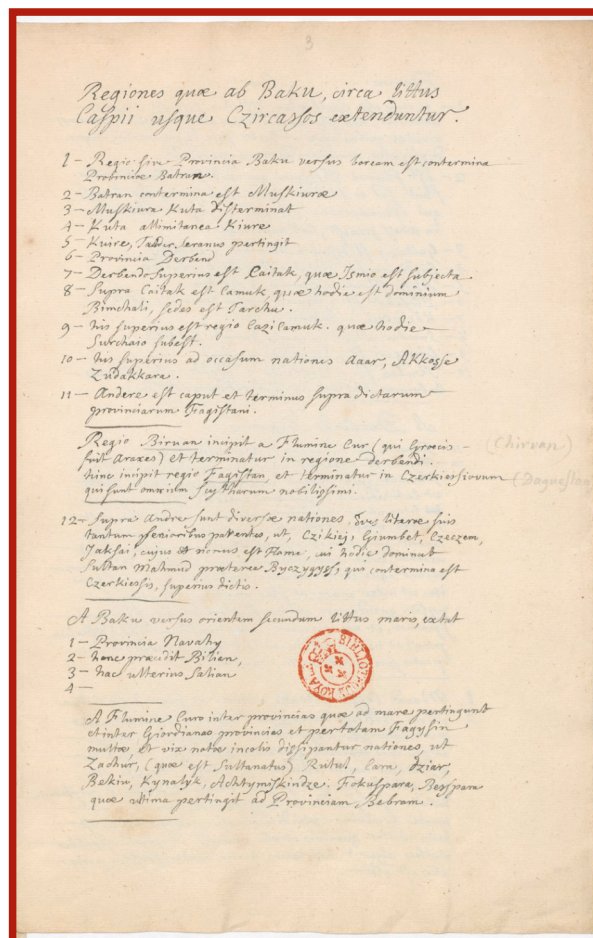 3
Regiones quæ ab Baku, circa littus
Caspii usque Czircassos extenduntur.
1 – Regio sive Provincia Baku versus boream est contermina
Provinciæ Batran.
2 – Batran contermina est Muskiuræ
3 – Muskiura Kuta disterminat
4 – Kuta allimitanea Kiure
5 – Kuire, pertingit
6 – Provincia Derbend
7 – Derbendo superius est Caitak, quæ Ismio est subjecta
8 – Supra Caitak est Camuk, quæ hodie est dominium
Bimchali, sedes est Tarchu.
9 – his superius est regio Cazilamuk. quæ hodie
Surchaio subest.
10 – his superius ad occasum nationes Aaar, Akkosse
Zudakkara.
11 – Andere est caput et terminus supra dictarum
provinciarum Fagistani.
Regio Biruan incipit a Flumine Cur (qui Græcis
fuit Araxes) et terminatur in regione derbendi.
hinc incipit regio Fagistan, et terminatur in
qui sunt omnium Scytharum nobilissimi.
(Chirvan)
(Daguestan)
12 – Supra Andre sunt diversæ nationes,
tantum parentes, ut, Czikiej, Giumbet, Czeczem,
Jaksai, cujus est Home, cui hodie dominat
Sultan Mahmud Byczygyss, qui contermina est
Czerkiessis, superius dictis.
A Baku versus orientem secundum littus maris, extat
1 – Provincia Navahy
2 – hanc Bilian,
3 – hac ulterius Salian
4 –
BIBLIOTH
A Flumine Curo inter provincias quæ ad mare pertingunt
et inter Giordianas provincias et per totam Fagysin
multæ et vix notæ incolis dissipantur nationes, ut
Zachur, (quæ est Sultanatus) Rutul, Cara, dziar,
Belkin, Kynalyk, Achtymiskindze. Fokuspara, Berspara
quæ ultima pertingit ad Provinciam Bebram.